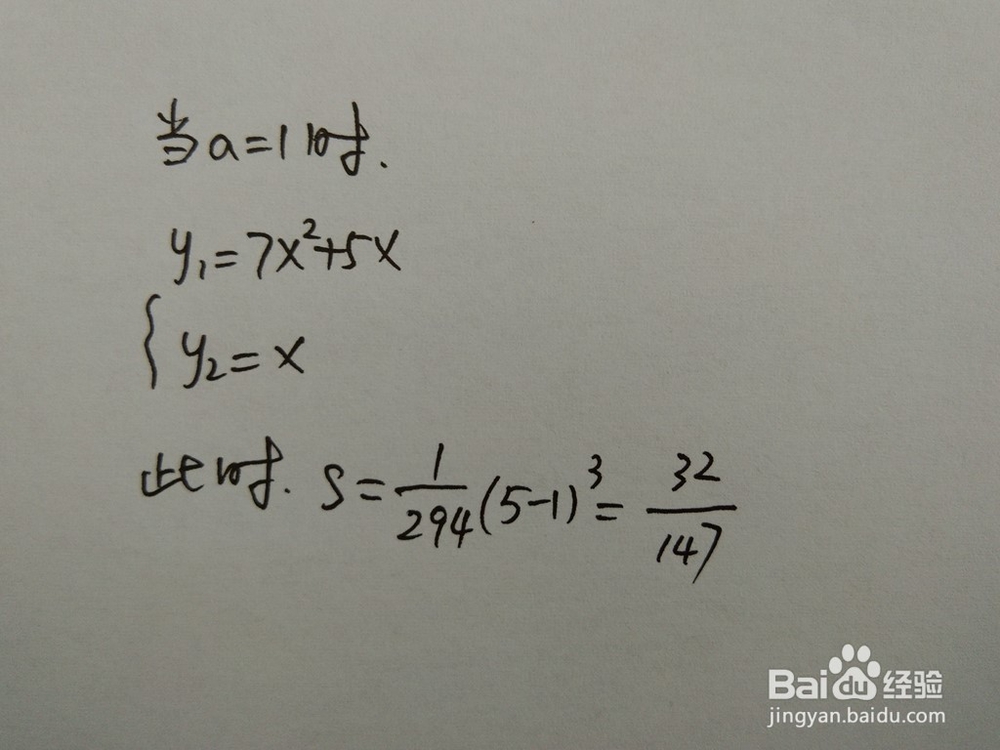 当a=1时.
y₁=7x²+5x
{y₂=x
此时. S=1/294(5-1)³=32/147
Baidu 经验
jingyan.baidu.com